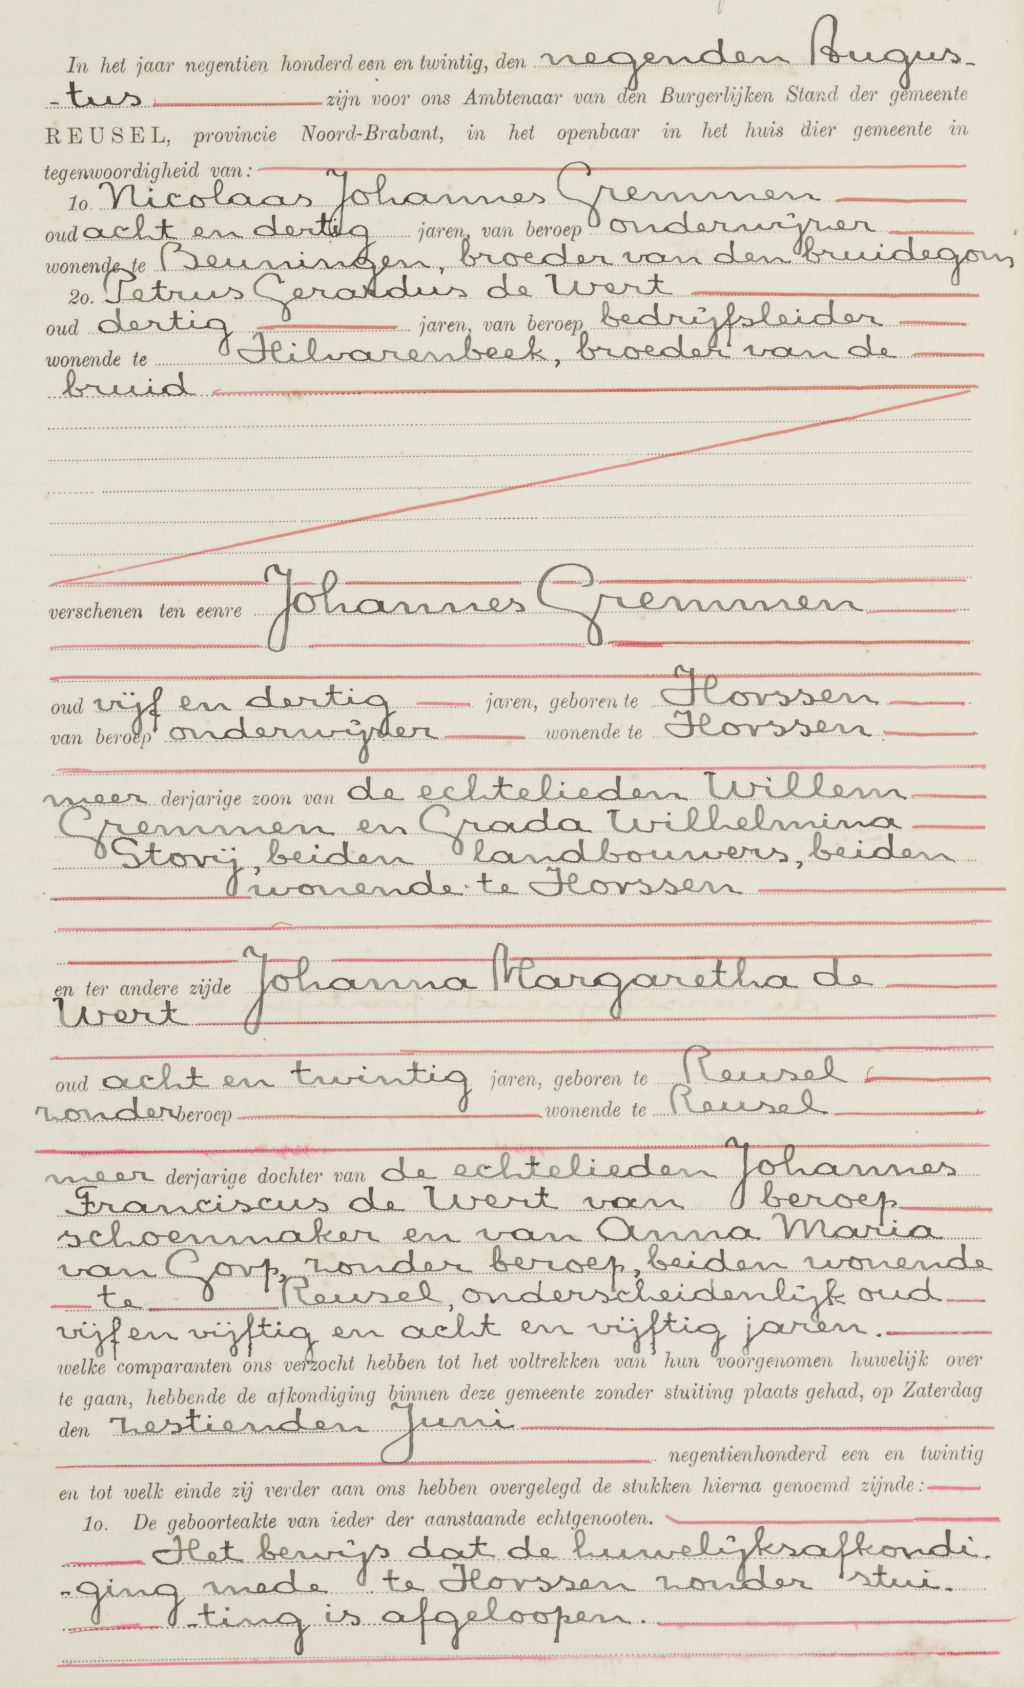 In het jaar negentien honderd een en twintig, den negenden Augus-
-tus zijn voor ons Ambtenaar van den Burgerlijken Stand der gemeente
REUSEL, provincie Noord-Brabant, in het openbaar in het huis dier gemeente in
tegenwoordigheid van:
1o. Nicolaas Johannes Gremmen
oud acht en dertig jaren, van beroep onderwijzer
wonende te Beuningen, broeder van den bruidegom
2o. Petrus Gerardus de Wert
oud dertig jaren, van beroep bedrijfsleider
wonende te Hilvarenbeek, broeder van de
bruid
verschenen ten eenre Johannes Gremmen
oud vijf en dertig jaren, geboren te Horssen
van beroep onderwijzer wonende te Horssen
meer derjarige zoon van de echtelieden Willem
Gremmen en Grada Wilhelmina
Storij, beiden landbouwers, beiden
wonende te Horssen
en ter andere zijde Johanna Margaretha de
Wert
oud acht en twintig jaren, geboren te Reusel
zonder beroep wonende te Reusel
meer derjarige dochter van de echtelieden Johannes
Franciscus de Wert van beroep
schoenmaker en van Anna Maria
van Gorp, zonder beroep, beiden wonende
te Reusel, onderscheidenlijk oud
vijf en vijftig en acht en vijftig jaren.
welke comparanten ons verzocht hebben tot het voltrekken van hun voorgenomen huwelijk over
te gaan, hebbende de afkondiging binnen deze gemeente zonder stuiting plaats gehad, op Zaterdag
den zestienden Juni
negentienhonderd een en twintig
en tot welk einde zij verder aan ons hebben overgelegd de stukken hierna genoemd zijnde:
1o. De geboorteakte van ieder der aanstaande echtgenooten.
Het bewijs dat de huwelijksafkondi-
-ging mede te Horssen zonder stui-
-ting is afgeloopen.